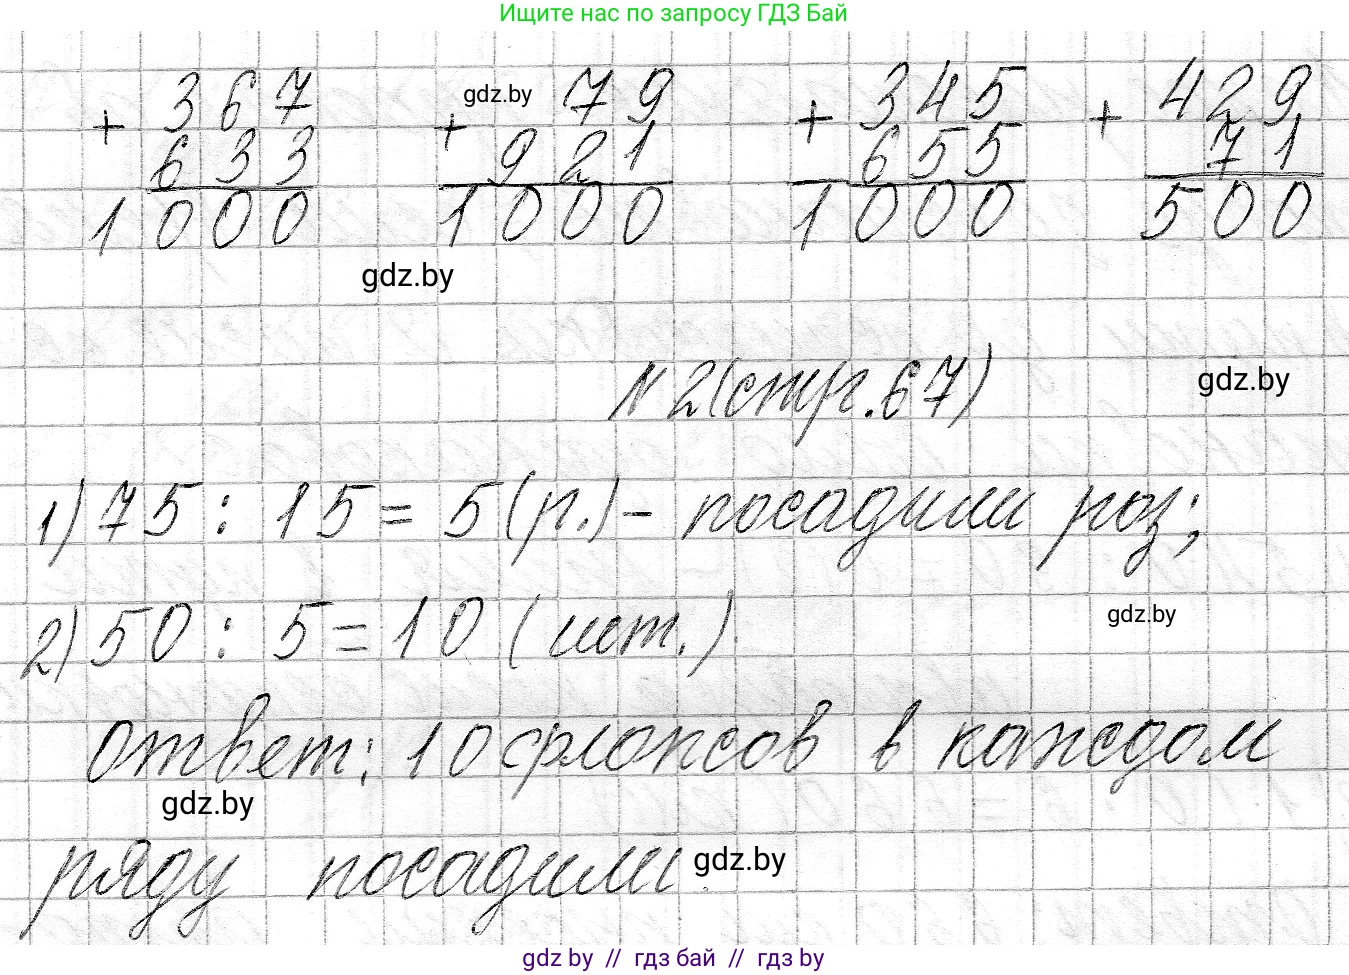 Ищите нас по запросу ГДЗ Бай
+ 367 + gdz.by 79 + 345 + 429
633 921 655 71
1000 1000 1000 500
gdz.by
№2(стр.67)
gdz.by
1) 75 : 15 = 5 (р.) - посадили роз;
2) 50 : 5 = 10 (шт.)
gdz.by
Ответ: 10 флоксов в каждом
gdz.by
ряду посадили
gdz.by
gdz.by // гдз бай // гдз by